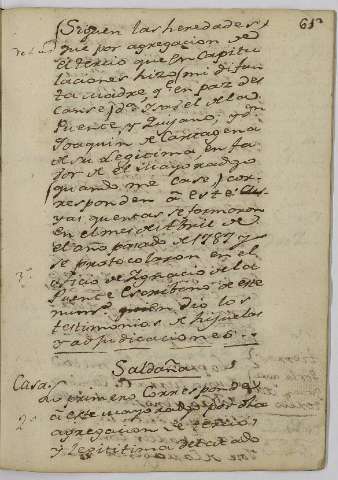 61
(Siguen las heredades)
que por agregacion de
el tercio que en Capitu
laciones hizo mi difun
ta Madre q.e en paz des
canse) d.a Isabel de la
Puente, y Quijano, y d.n
Joaquin de Cartagena
de su Legitima en fa
vor de el Mayorazgo
(quando me case) cor
responden a este
yas quentas se formaron
en el mes de Abril de
el año pasado de 1787 y
se protocolizaron en el
oficio de Ignacio de la
Puente Escribano de este
quien dio los
testimonios de hijuelas
y adjudicaciones
Saldaña
Casas
Lo primero Corresponde
a este mayorazgo por dha
agregacion de tercio
y Legitima